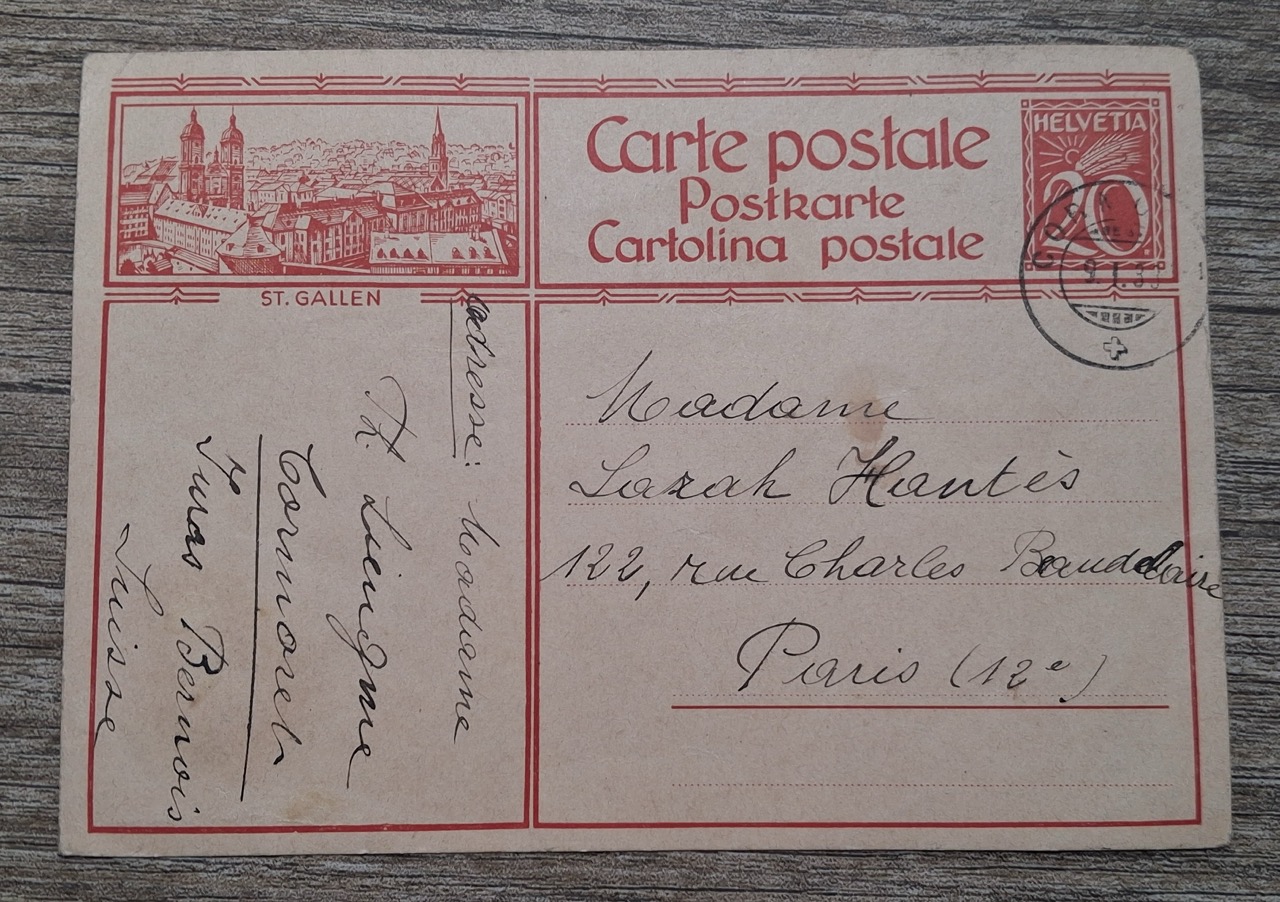 Carte postale
Postkarte
Cartolina postale
HELVETIA
20
ST. GALLEN
Adresse: Madame
Th. Liengme
Cormoret
Jura Bernois
Suisse
Madame
Sarah Hantès
122, rue Charles Baudelaire
Paris (12e)